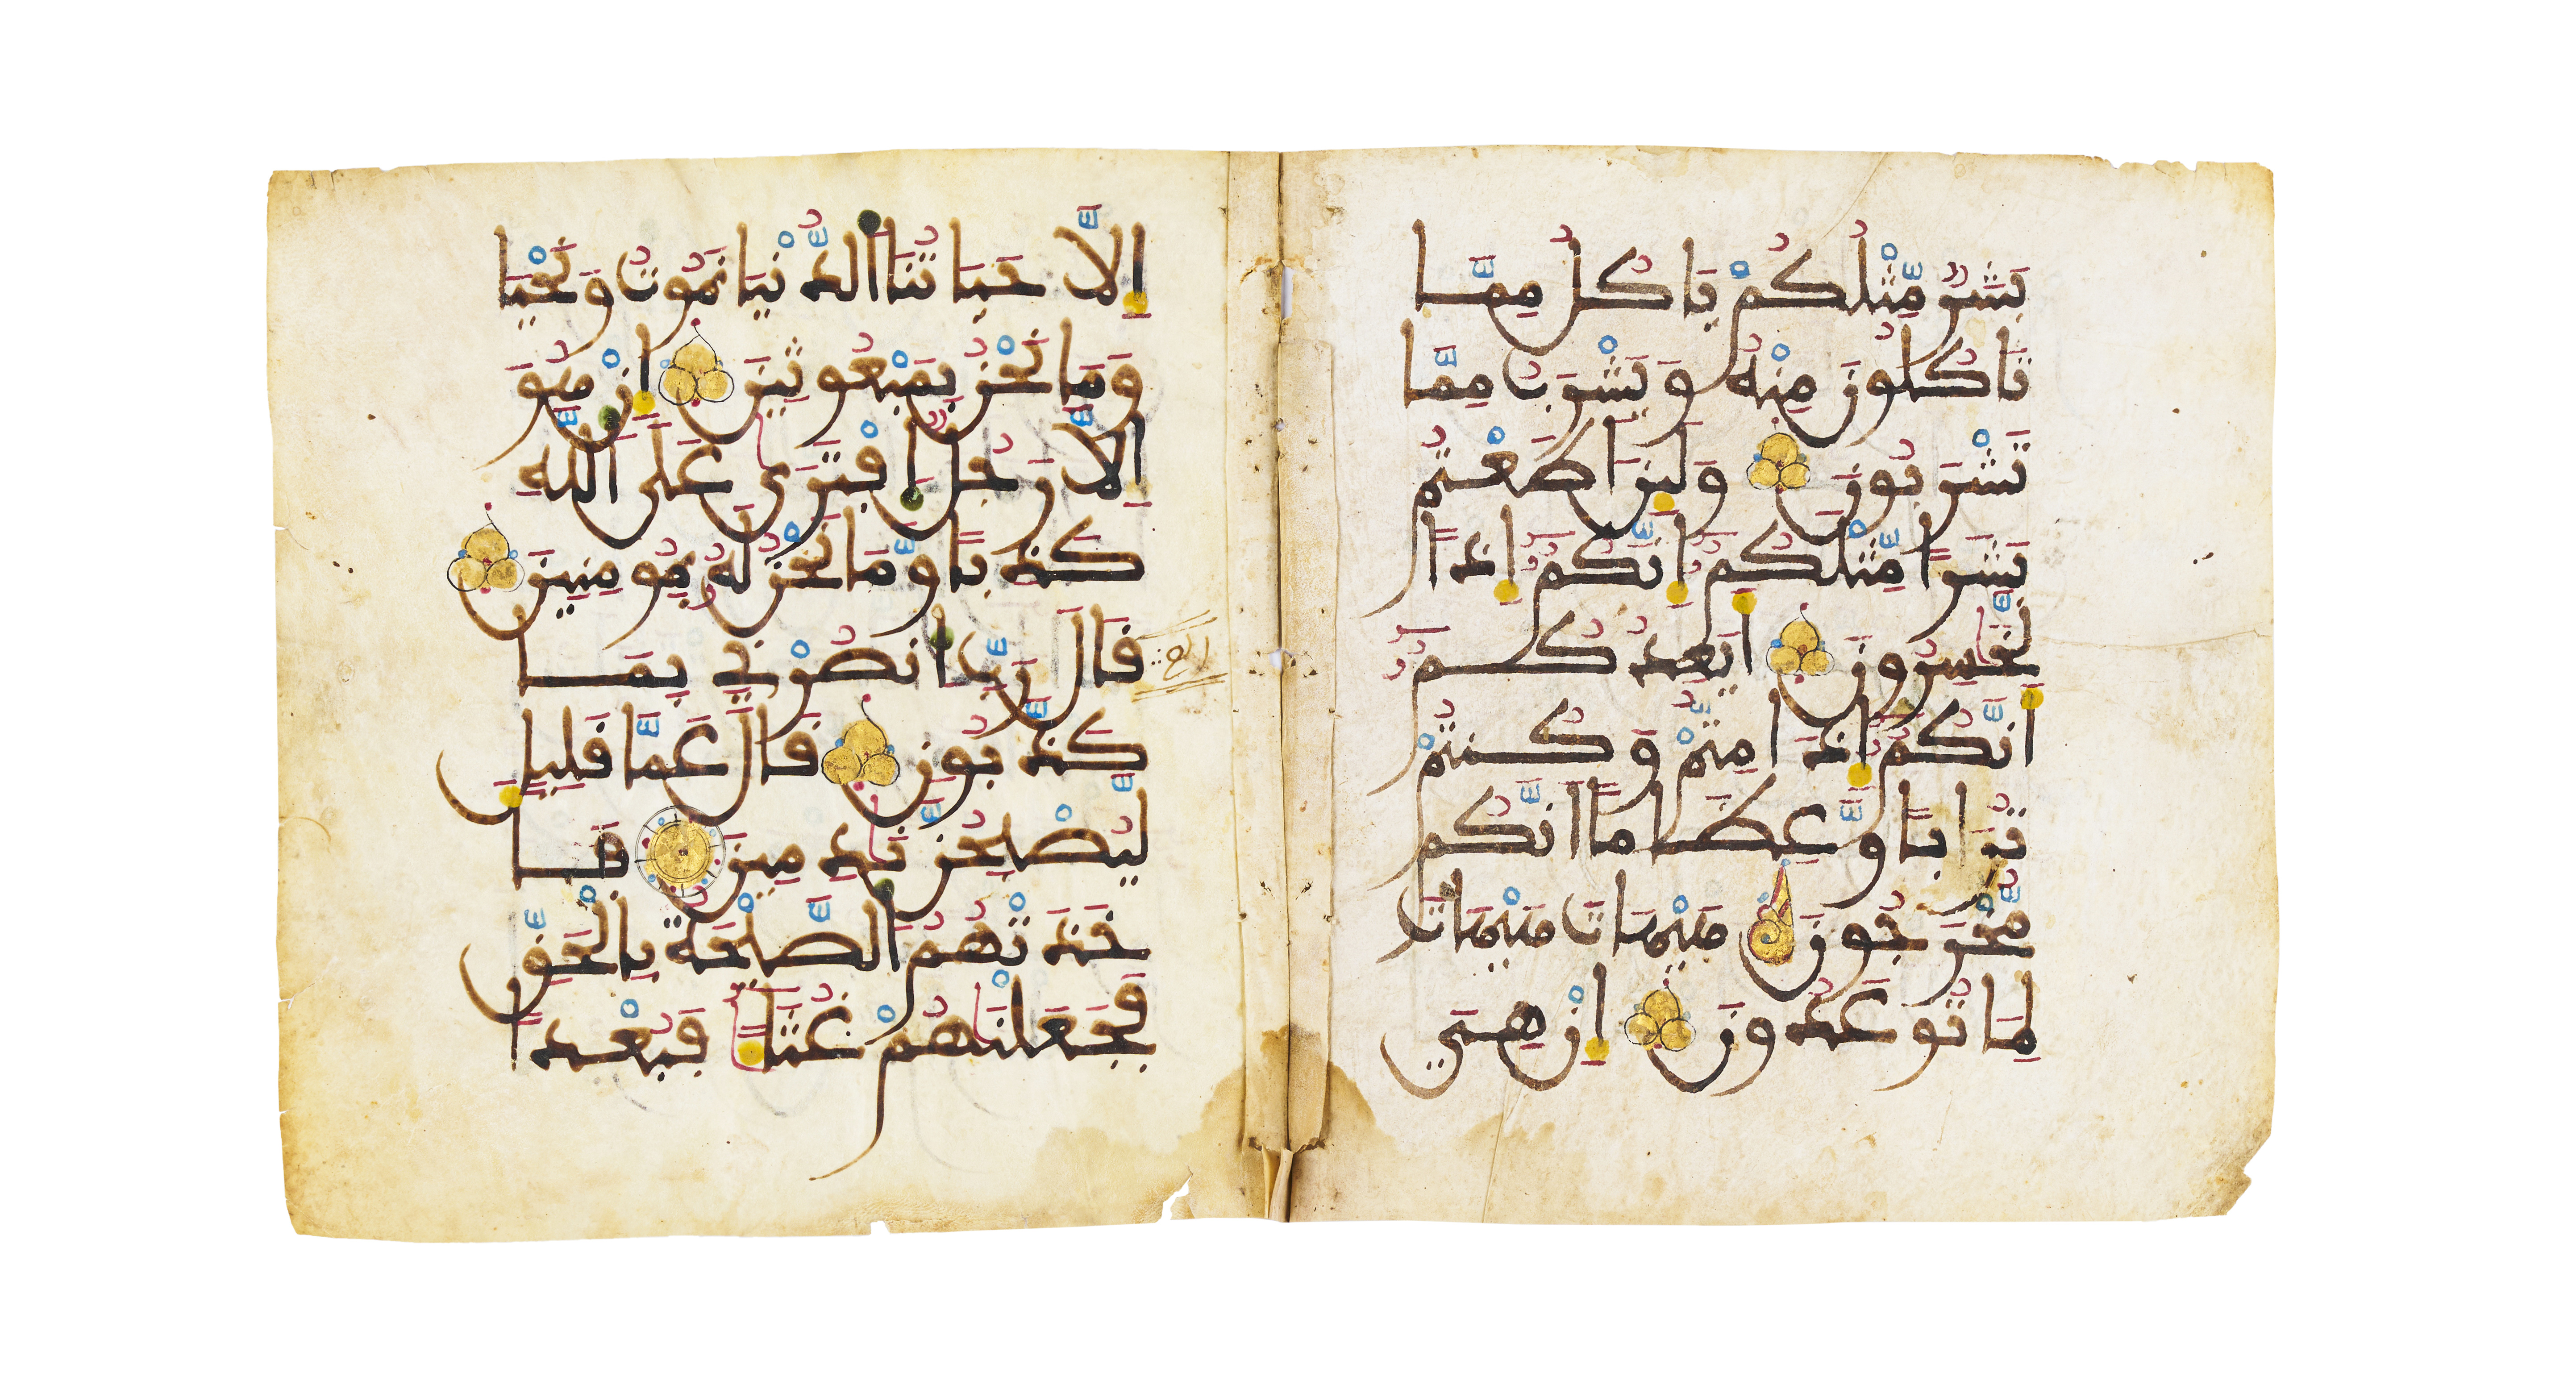 بَشَرٌ مِّثْلُكُمْ يَاكُلُ مِمَّا
تَاكُلُونَ مِنْهُ وَيَشْرَبُ مِمَّا
تَشْرَبُونَ وَلَئِنَ اَطَعْتُم
بَشَرًا مِّثْلَكُمُ إِنَّكُمُ إِذًا
لَّخَٰسِرُونَ اَيَعِدُكُمُ
أَنَّكُمُ إِذَا مِتُّمْ وَكُنتُمْ
تُرَابًا وَّعِظَامًا اَنَّكُم
مُّخْرَجُونَ هَيْهَاتَ هَيْهَاتَ
لِمَا تُوعَدُونَ إِنْ هِيَ
إِلَّا حَيَاتُنَا الدُّنْيَا نَمُوتُ وَنَحْيَا
وَمَا نَحْنُ بِمَبْعُوثِينَ إِنْ هُوَ
إِلَّا رَجُلٌ اِفْتَرَىٰ عَلَى اَللهِ
كَذِبًا وَّمَا نَحْنُ لَهُ بِمُومِنِينَ
قَالَ رَبِّ اِنصُرْنِي بِمَا
كَذَّبُونِ قَالَ عَمَّا قَلِيلٍ
لَّيُصْبِحُنَّ نَٰدِمِينَ فَأَ
خَذَتْهُمُ الصَّيْحَةُ بِالْحَقِّ
فَجَعَلْنَٰهُمْ غُثَآءً فَبُعْدًا